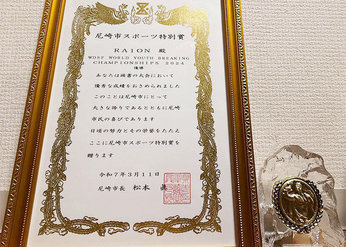 尼崎市スポーツ特別賞
RAION 殿
WDSF WORLD YOUTH BREAKING
CHAMPIONSHIPS 2024
優勝
あなたは頭書の大会において
優秀な成績をおさめられました
このことは尼崎市にとって
大きな誇りであるとともに尼崎
市民の喜びであります
日頃の努力とその栄誉をたたえ
ここに尼崎市スポーツ特別賞を
贈ります
令和7年3月11日
尼崎市長 松本 眞